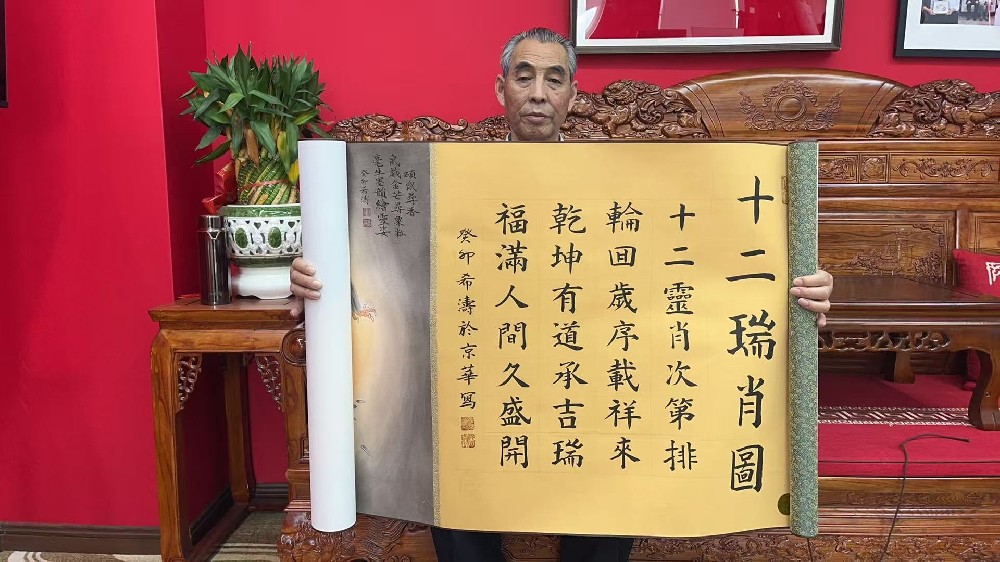 十二瑞肖圖
十二靈肖次第排
輪回歲序載祥來
乾坤有道承吉瑞
福滿人間久盛開
癸卯希濤於京華寫
癸卯希濤